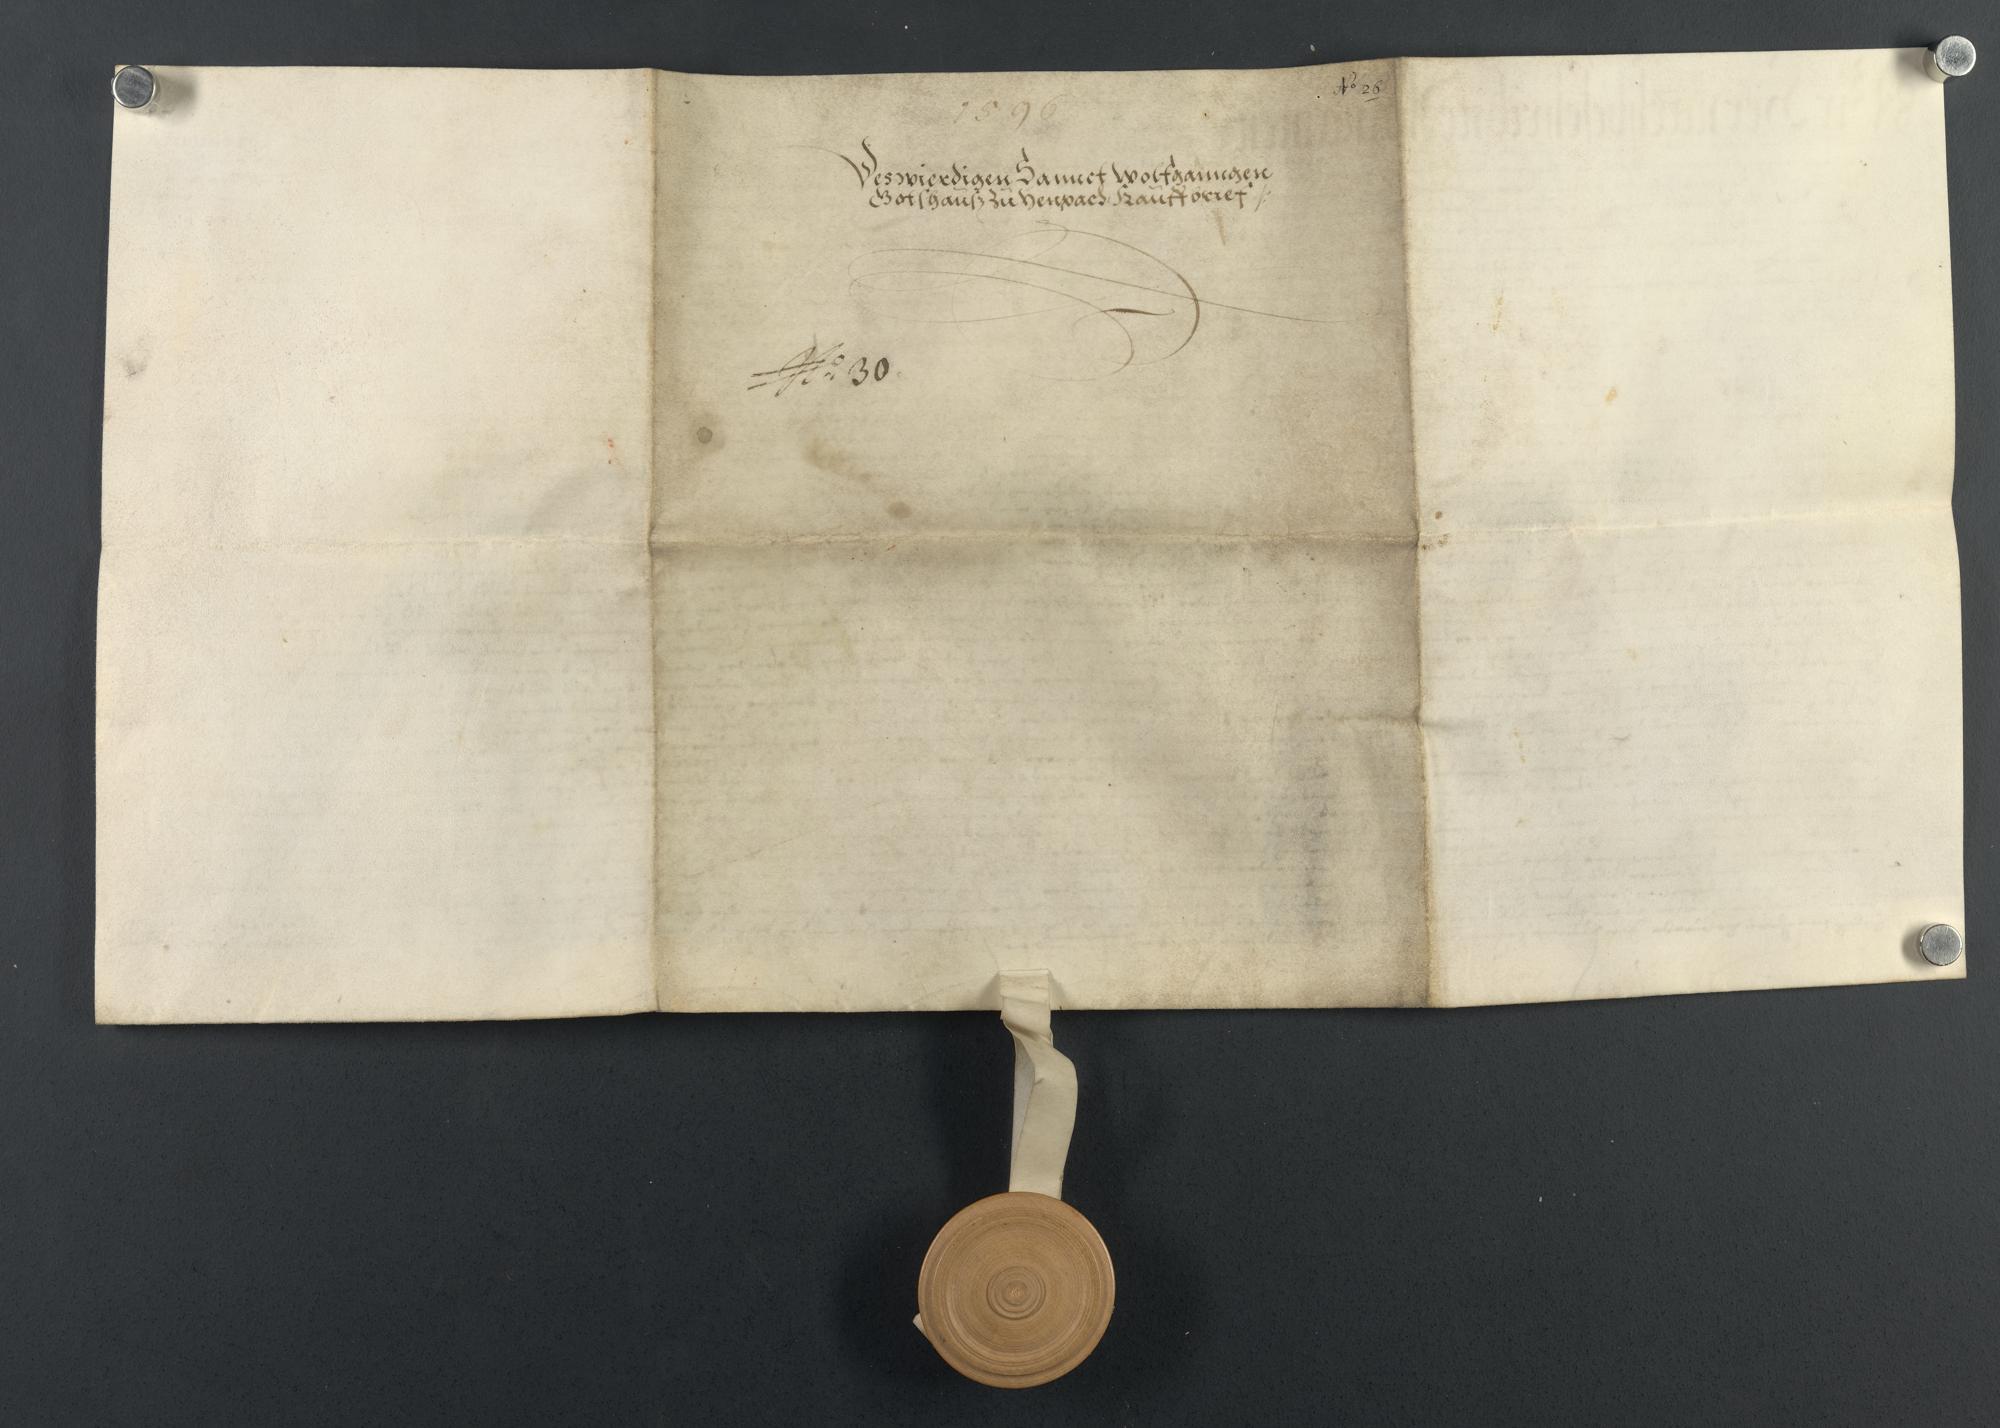 No 26
1596
Des wierdigen Sannct Wolfganngen
Gotshauß zu Henpach Kauffbrief
No 30